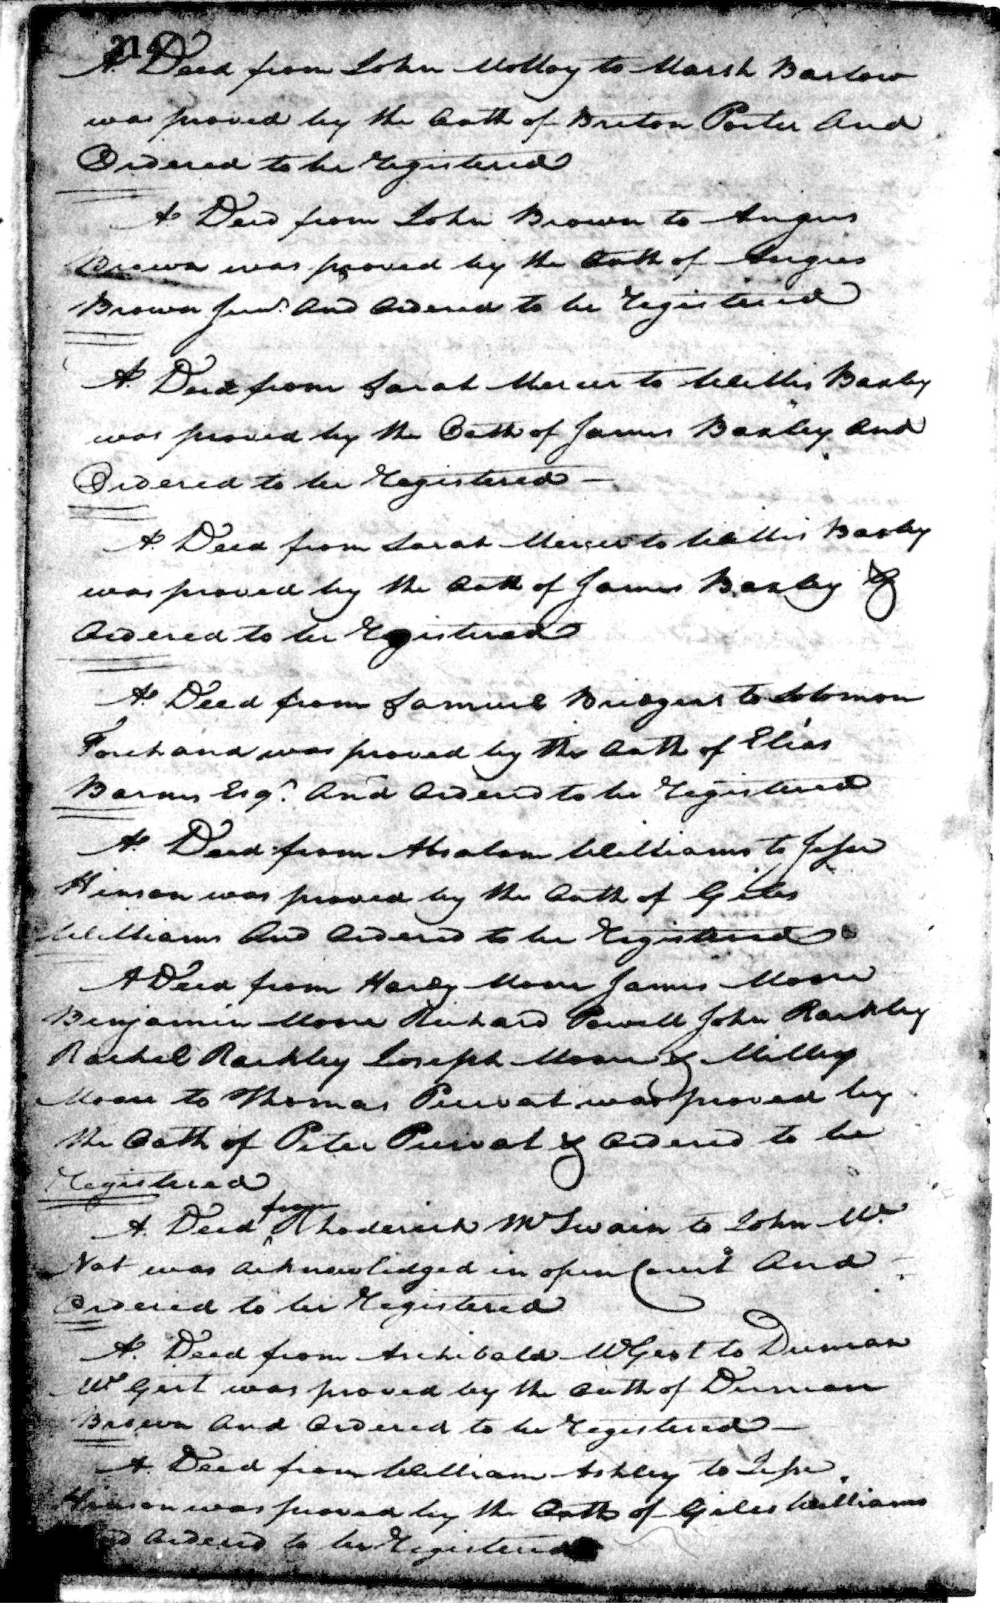 A Deed from John Molloy to Marsh Barlow
was proved by the Oath of Briton Porter And
Ordered to be Registered
A Deed from John Brown to Angus
Brown was proved by the Oath of Angus
Brown Junr. And Ordered to be Registered
A Deed from Sarah Mercer to Willis Baxley
was proved by the Oath of James Baxley And
Ordered to be Registered —
A Deed from Sarah Mercer to Willis Baxley
was proved by the Oath of James Baxley &
Ordered to be Registered
A Deed from Samuel Bridgers to Solomon
Forehand was proved by the Oath of Elias
Barnes Esqr. And Ordered to be Registered
A Deed from Absalom Williams to Jesse
Hinson was proved by the Oath of Giles
Williams And Ordered to be Registered
A Deed from Hardy Moore James Moore
Benjamin Moore Richard Powell John Rackley
Rachel Rackley Joseph Moore & Milley
Moore to Thomas Purvat was proved by
the Oath of Peter Purvat & Ordered to be
Registered
A Deed from Rhoderick McSwain to John Mc
Nat was acknowledged in open Court And
Ordered to be Registered
A Deed from Archibald McGert to Duncan
McGert was proved by the Oath of Duncan
Brown And Ordered to be Registered —
A Deed from William Ashley to Jesse
Hinson was proved by the Oath of Giles Williams
And Ordered to be Registered